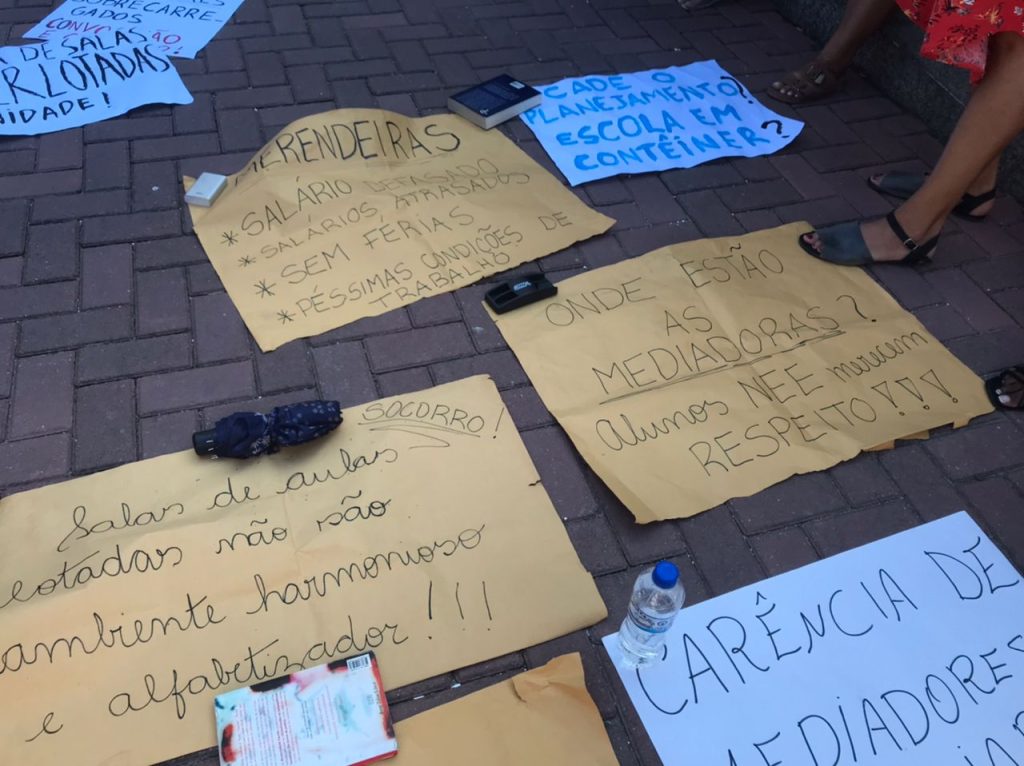 SOBRECARRE-
GADOS
DE SALAS
LOTADAS
CADE O
PLANEJAMENTO?
ESCOLA EM
CONTÊINER?
MERENDEIRAS
* SALÁRIO DEFASADO
* SALÁRIOS ATRASADOS
* SEM FÉRIAS
* PÉSSIMAS CONDIÇÕES DE
TRABALHO
ONDE ESTÃO
AS
MEDIADORAS?
Alunos NEE merecem
RESPEITO!!!
SOCORRO!
Salas de aulas
lotadas não são
ambiente harmonioso
e alfabetizador!!!
CARÊNCIA DE
MEDIADORES